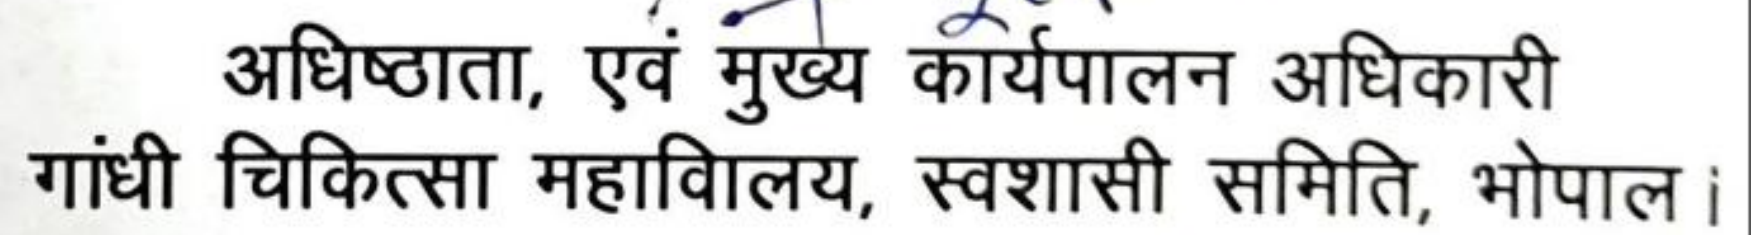 अधिष्ठाता, एवं मुख्य कार्यपालन अधिकारी
गांधी चिकित्सा महाविालय, स्वशासी समिति, भोपाल।